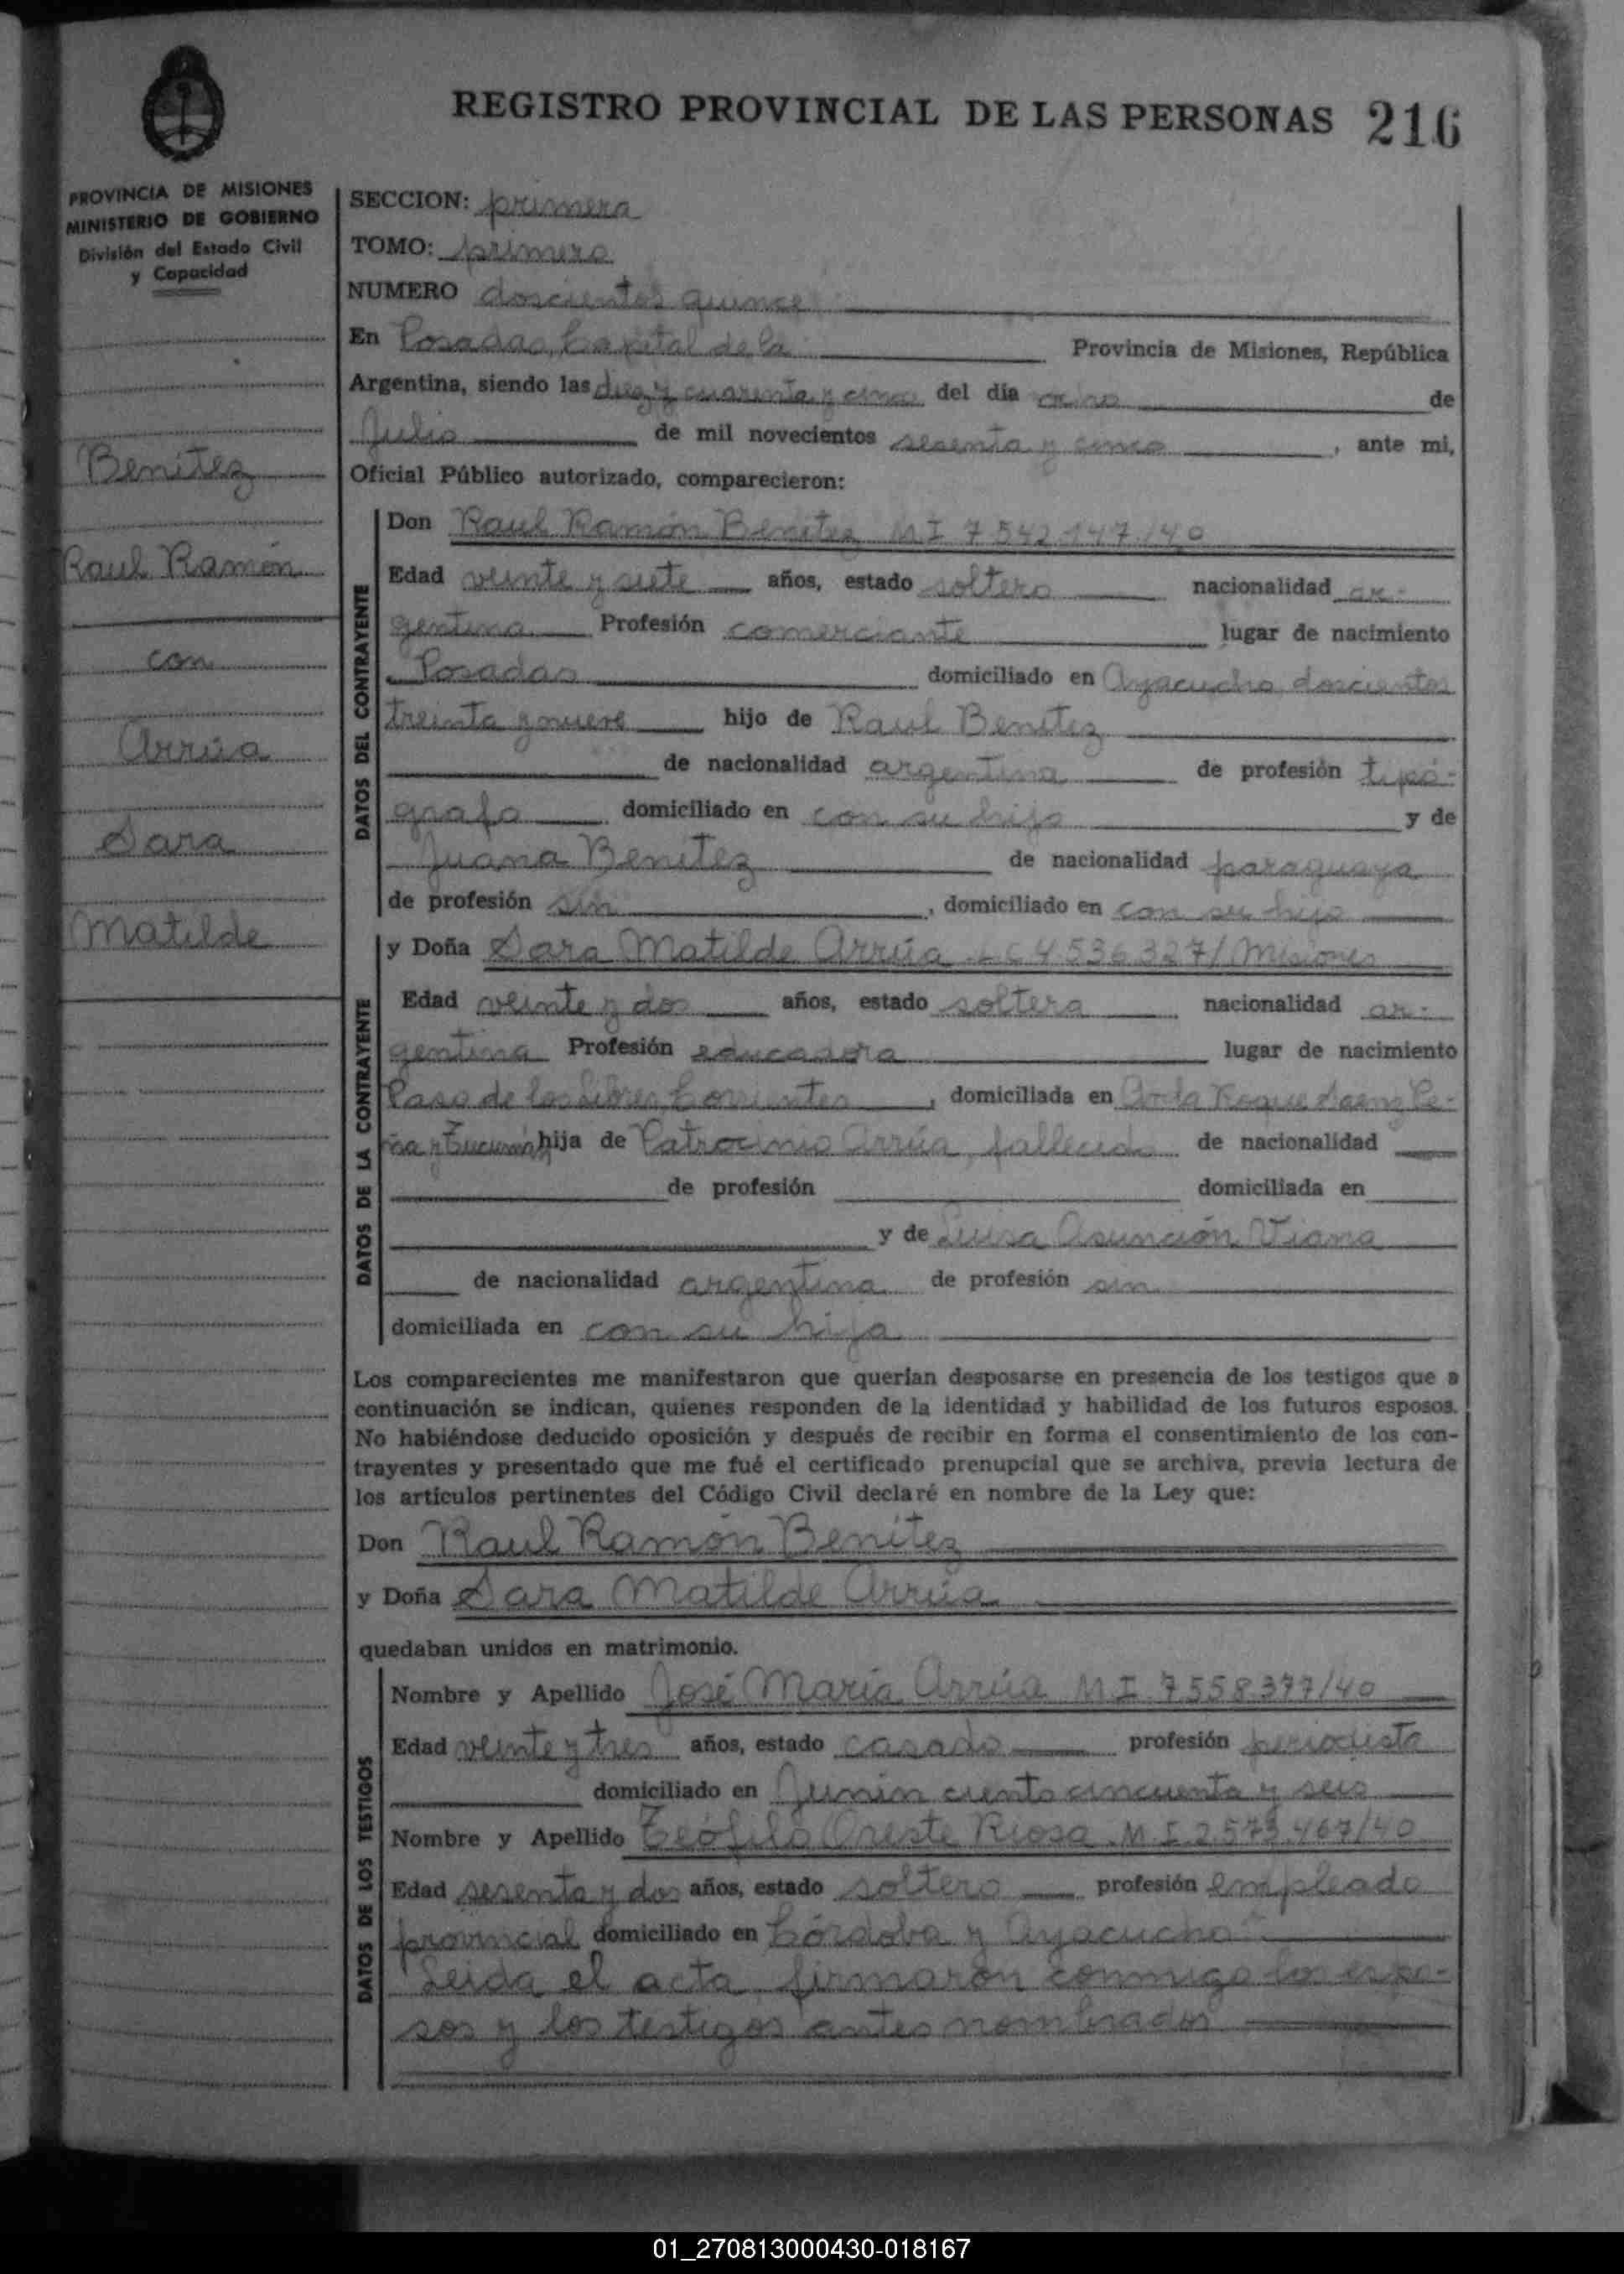 REGISTRO PROVINCIAL DE LAS PERSONAS 216
PROVINCIA DE MISIONES
MINISTERIO DE GOBIERNO
División del Estado Civil
y Capacidad
Benítez
Raul Ramón
con
Arrúa
Sara
Matilde
SECCION: primera
TOMO: primero
NUMERO doscientos quince
En Posadas, Capital de la Provincia de Misiones, República
Argentina, siendo las diez y cuarenta y cinco del día ocho de
Julio de mil novecientos sesenta y cinco, ante mi,
Oficial Público autorizado, comparecieron:
DATOS DEL CONTRAYENTE
Don Raul Ramón Benítez M I 7542147/40
Edad veinte y siete años, estado soltero nacionalidad ar-
gentina Profesión comerciante lugar de nacimiento
Posadas domiciliado en Ayacucho doscientos
treinta y nueve hijo de Raul Benítez
de nacionalidad argentina de profesión tipó-
grafo domiciliado en con su hijo y de
Juana Benítez de nacionalidad paraguaya
de profesión sin, domiciliado en con su hijo
DATOS DE LA CONTRAYENTE
y Doña Sara Matilde Arrúa L C 4.536.327/Misiones
Edad veinte y dos años, estado soltera nacionalidad ar-
gentina Profesión educadora lugar de nacimiento
Paso de los Libres, Corrientes, domiciliada en Avda Roque Saenz Pe-
ña y Tucumán hija de Patrocinio Arrúa, fallecido de nacionalidad
de profesión domiciliada en
y de Luisa Asunción Viana
de nacionalidad argentina de profesión sin
domiciliada en con su hija
Los comparecientes me manifestaron que querían desposarse en presencia de los testigos que a
continuación se indican, quienes responden de la identidad y habilidad de los futuros esposos.
No habiéndose deducido oposición y después de recibir en forma el consentimiento de los con-
trayentes y presentado que me fué el certificado prenupcial que se archiva, previa lectura de
los artículos pertinentes del Código Civil declaré en nombre de la Ley que:
Don Raul Ramón Benítez
y Doña Sara Matilde Arrúa
quedaban unidos en matrimonio.
DATOS DE LOS TESTIGOS
Nombre y Apellido José María Arrúa M I 7558377/40
Edad veinte y tres años, estado casado profesión periodista
domiciliado en Junin ciento cincuenta y seis
Nombre y Apellido Teófilo Oreste Riosa M I 2.573.467/40
Edad sesenta y dos años, estado soltero profesión empleado
provincial domiciliado en Córdoba y Ayacucho
Leida el acta, firmaron conmigo los espo-
sos y los testigos antes nombrados
01_270813000430-018167